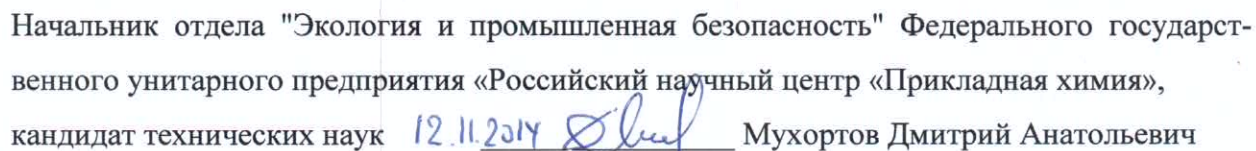 Начальник отдела "Экология и промышленная безопасность" Федерального государст-
венного унитарного предприятия «Российский научный центр «Прикладная химия»,
кандидат технических наук 12.11.2014 Мухортов Дмитрий Анатольевич